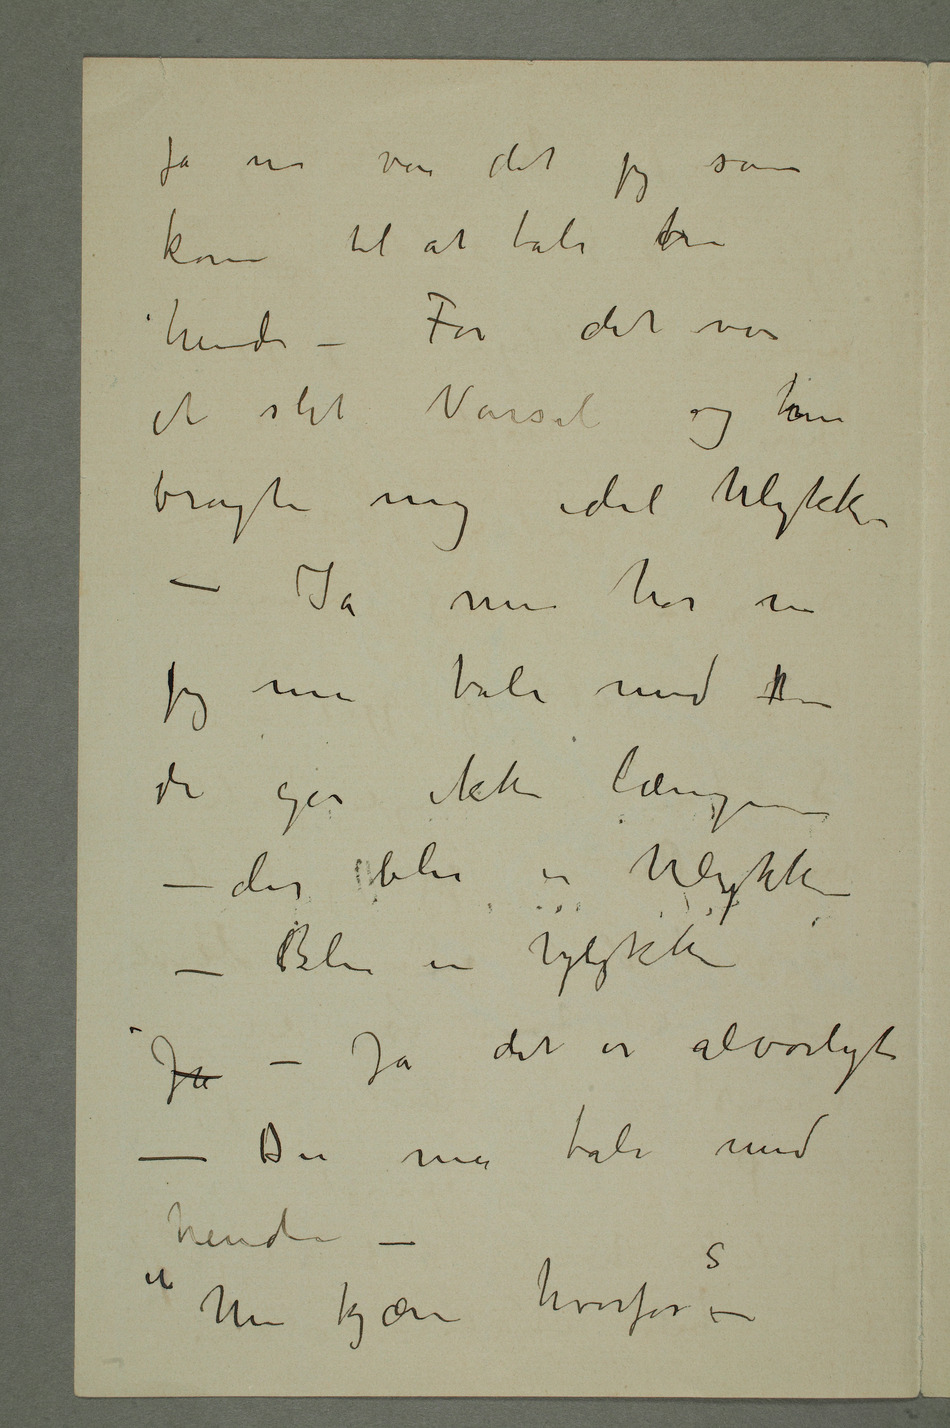 Ja nu var det jeg som
kom til at tale om
hende – For det var
et slet Varsel og hun
bragte mig idel Ulykke
– Ja men hør nu
jeg må tale med
de gør ikke længer
– der blir en Ulykke
– Blir en Ulykke
Ja – Ja det er alvorligt
– Du må tale med
hende –
Men kjære hvorfor –